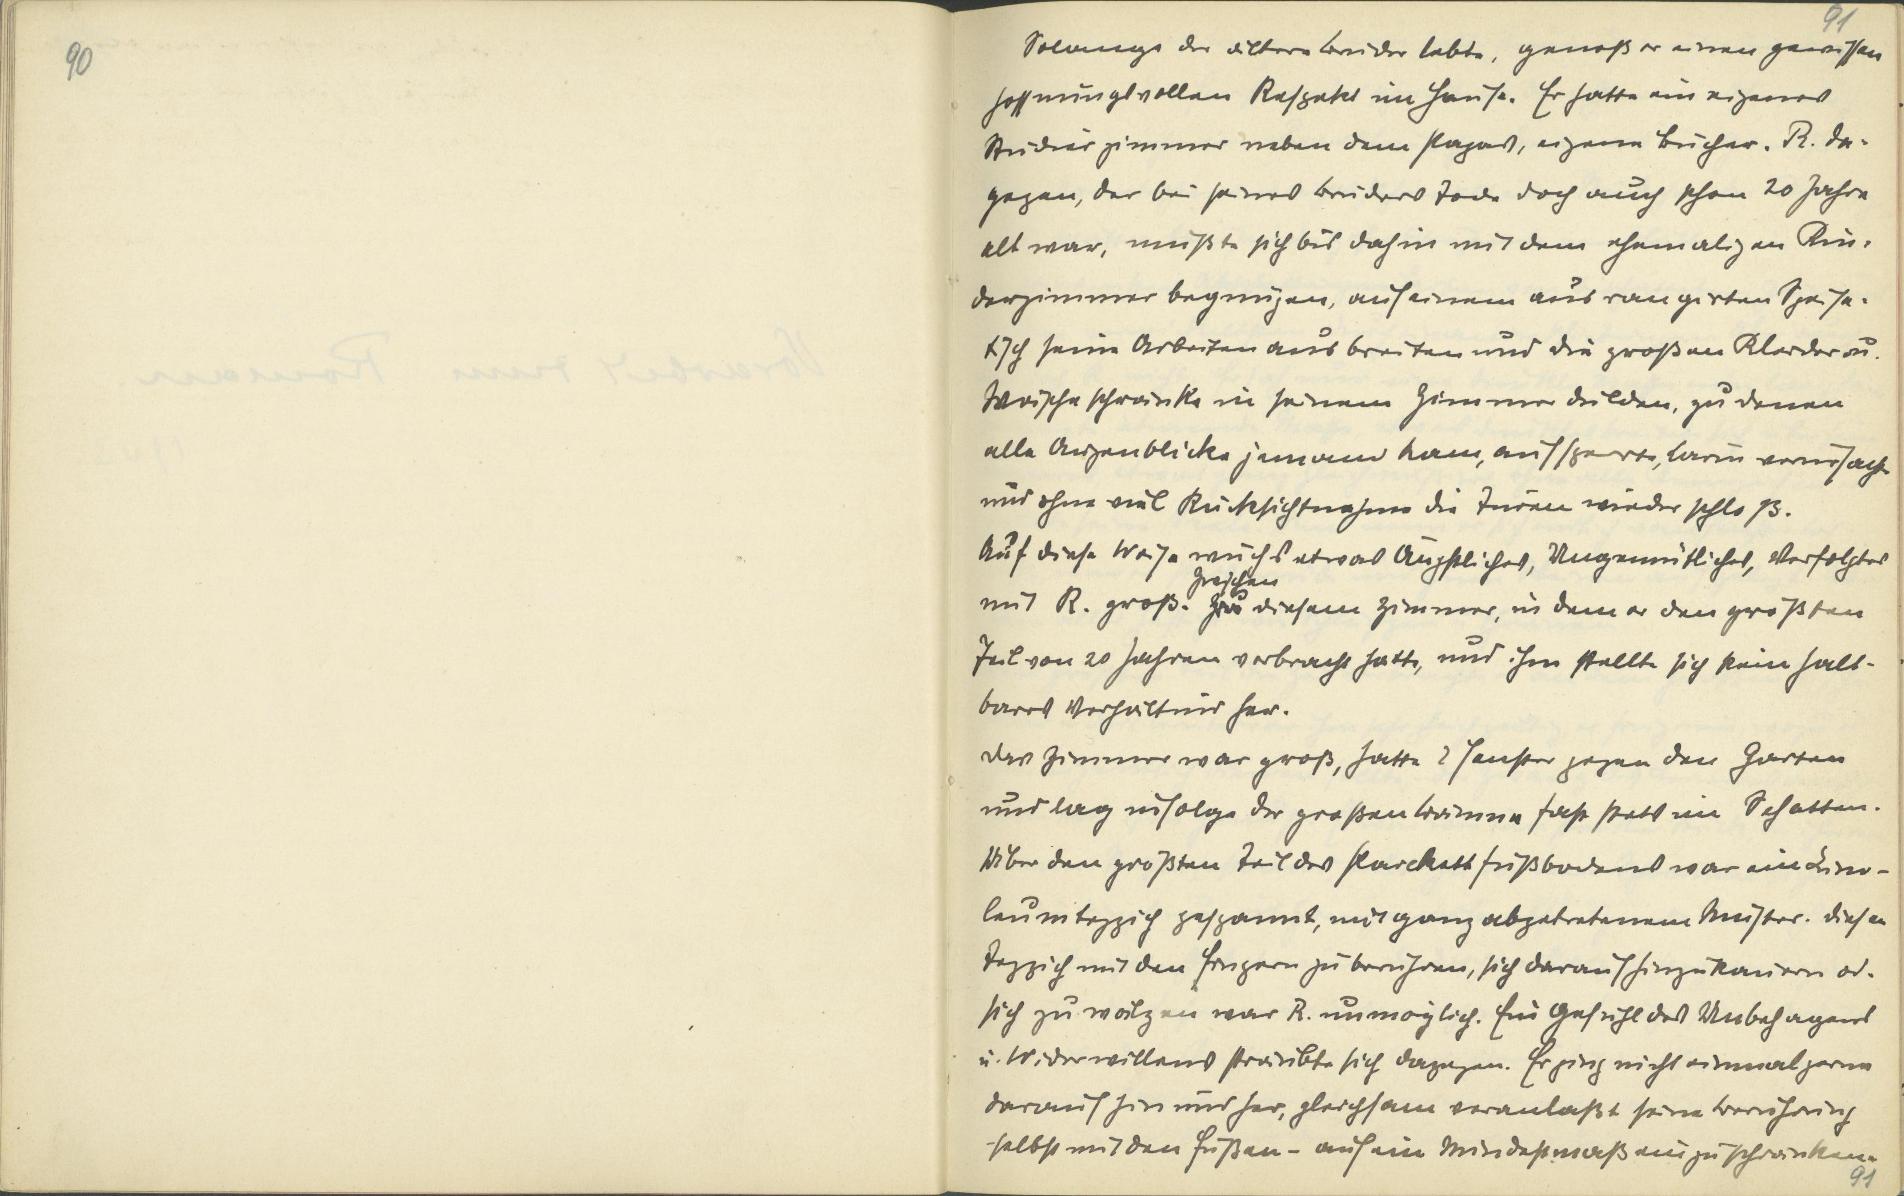 90
91
Solange der ältere Bruder lebte, genoß er einen gewissen
hoffnungsvollen Respekt im Hause. Er hatte ein eigenes
Studierzimmer neben dem Papas, eigene Bücher. R. da-
gegen, der bei seines Bruders Tode doch auch schon 20 Jahre
alt war, mußte sich bis dahin mit dem ehemaligen Kin-
derzimmer begnügen, auf einem ausrangirten Speise-
tisch seine Arbeiten ausbreiten und die großen Kleider u.
Wäscheschränke in seinem Zimmer dulden, zu denen
alle Augenblicke jemand kam, aufsperrte, Lärm verursachte
und ohne viel Rücksichtnahme die Türen wieder schloß.
Auf diese Weise wuchs etwas Ängstliches, Ungemütliches, Verfolgtes
Zwischen
mit R. groß. Zu diesem Zimmer, in dem er den größten
Teil von 20 Jahren verbracht hatte, und ihm stellte sich kein halt-
bares Verhältnis her.
Das Zimmer war groß, hatte 2 Fenster gegen den Garten
und lag infolge der großen Bäume fast stets im Schatten.
Über den größten Teil des Parkettfußbodens war ein Lino-
leumteppich gespannt, mit ganz abgetretenem Muster. Diesen
Teppich mit den Fingern zu berühren, sich darauf hinzukauern od.
sich zu wälzen war R. unmöglich. Ein Gefühl des Unbehagens
u. Widerwillens sträubte sich dagegen. Er ging nicht einmal gerne
darauf hin und her, gleichsam veranlaßt seine Berührung
-selbst mit den Füßen- auf ein Mindestmaß einzuschränken.
91